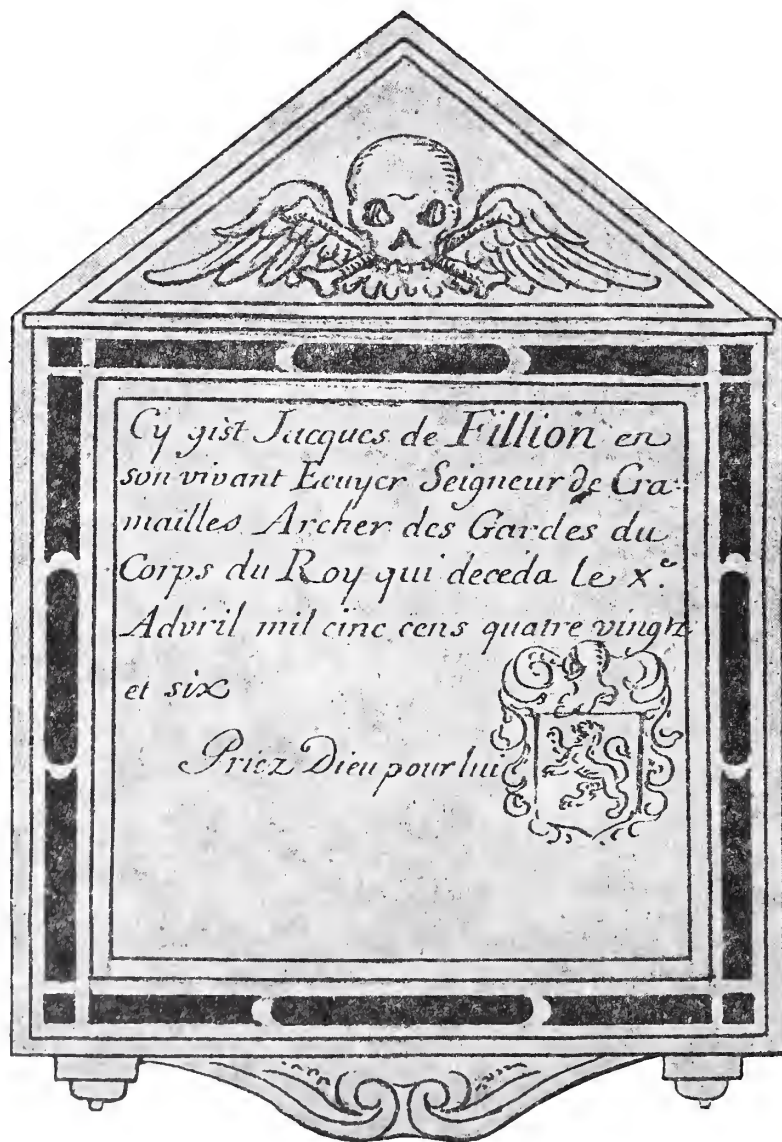 Cy gist Jacques de Fillion en
son vivant Ecuyer Seigneur de Cra-
mailles Archer des Gardes du
Corps du Roy qui deceda le x.e
Advril mil cinc cens quatre vingtz
et six
Priez Dieu pour lui